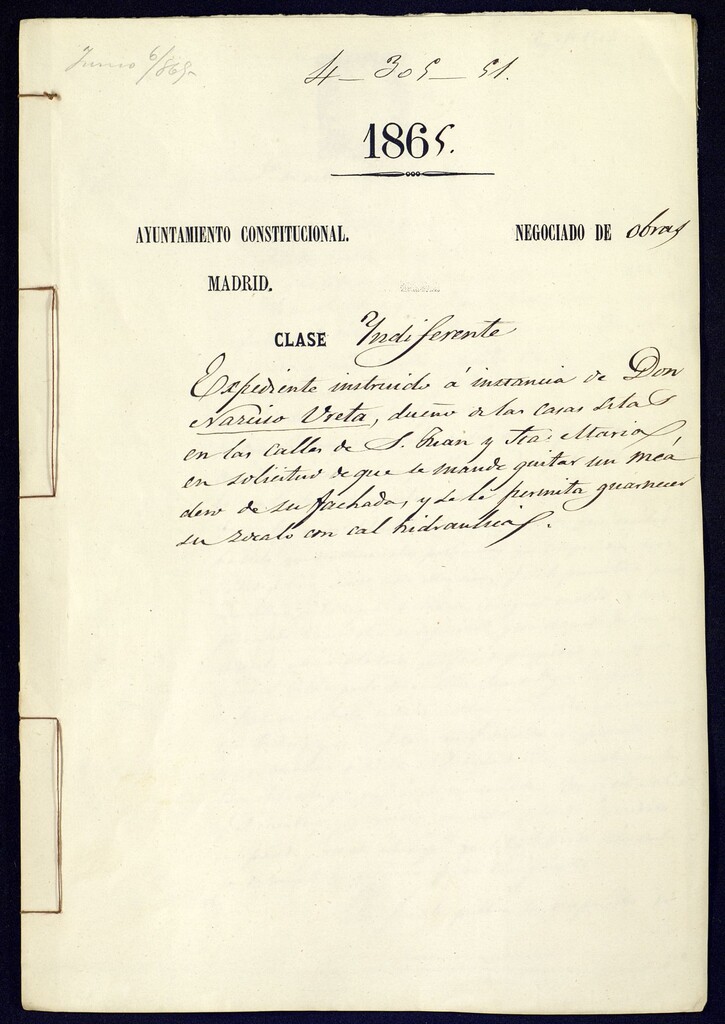 Junio 6/865
4-305-51.
1865.
AYUNTAMIENTO CONSTITUCIONAL. NEGOCIADO DE obras
MADRID.
CLASE Yndiferente
Expediente instruido á instancia de Don
Narciso Vreta, dueño de las casas sitas
en las calles de S. Juan y Sta. Maria
en solicitud de que se mande quitar un mea
dero de su fachada, y se le permita guarnecer
su zocalo con cal hidraulica.